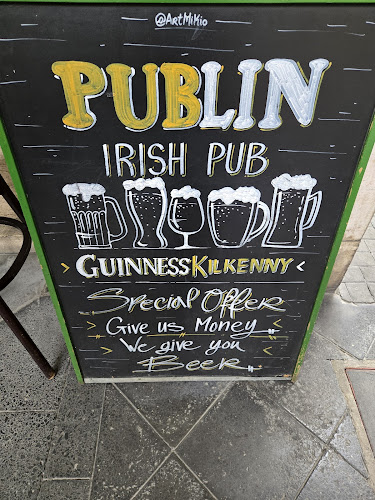 @ArtMiKio
PUBLIN
IRISH PUB
GUINNESS KILKENNY
Special Offer
Give us Money
We give you
Beer